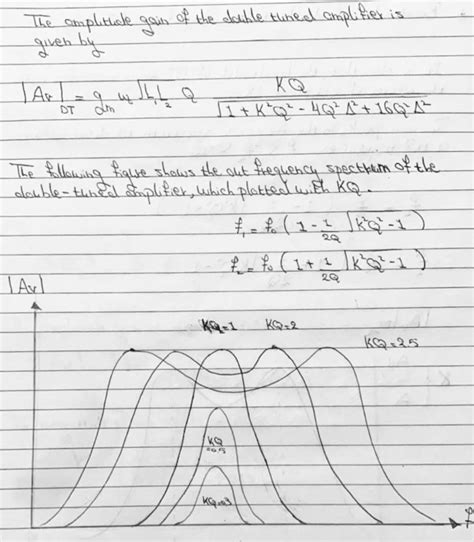 The amplitude gain of the double tuned amplifier is
given by
|Av|DT = gm ω √L1L2 Q KQ / √1 + K²Q² - 4Q²Δ² + 16Q²Δ²
The following figure shows the out frequency spectrum of the
double-tuned amplifier, which plotted with KQ.
f1 = f0 ( 1 - 1/2Q √K²Q² - 1 )
f2 = f0 ( 1 + 1/2Q √K²Q² - 1 )
|Av|
KQ=1 KQ=2
KQ=2.5
KQ
KQ=
f